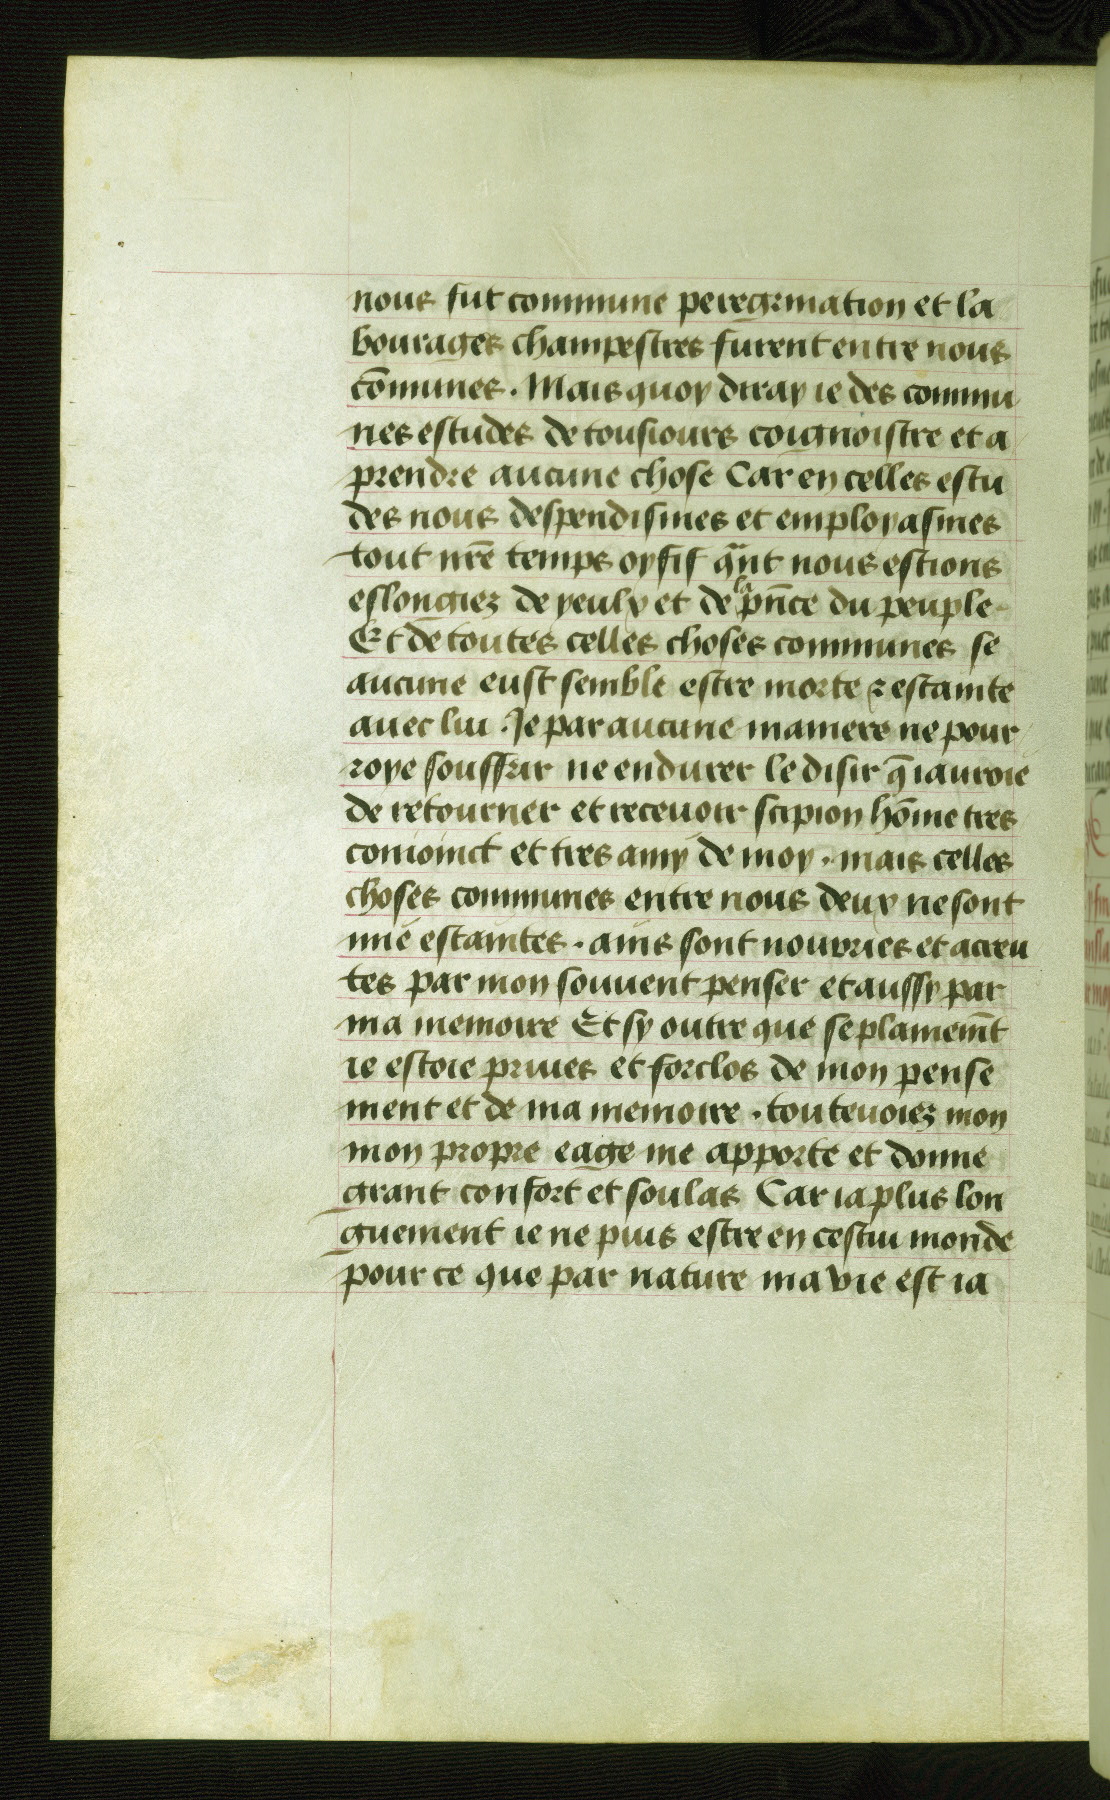 nous fut commune peregrination et la
bourages champestres furent entre nous
cōmunes . Mais quoy diray ie des commu
nes estudes de tousiours coignoistre et a
prendre aucune chose Car en celles estu
des nous despendismes et employasmes
tout nr̄e temps oysif qant nous estions
eslongiez de yeulx et de la pn̄ce du peuple
Et de toutes celles choses communes se
aucune eust semble estre morte ⁊ estainte
auec lui . Je par aucune maniere ne pour
roye souffrir ne endurer le disir q̄ iauroie
de retourner et receuoir scipion hōme tres
conioinct et tres amy de moy . mais celles
choses communes entre nous deux ne sont
mie estaintes . ains sont nourries et acreu
tes par mon souuent penser et aussy par
ma memoire Et sy outre que se plainem̄t
ie estoie priues et forclos de mon pense
ment et de ma memoire . touteuoiez mon
mon propre eage me apporte et donne
grant confort et soulas Car ia plus lon
guement ie ne puis estre en cestui monde
pour ce que par nature ma vie est ia